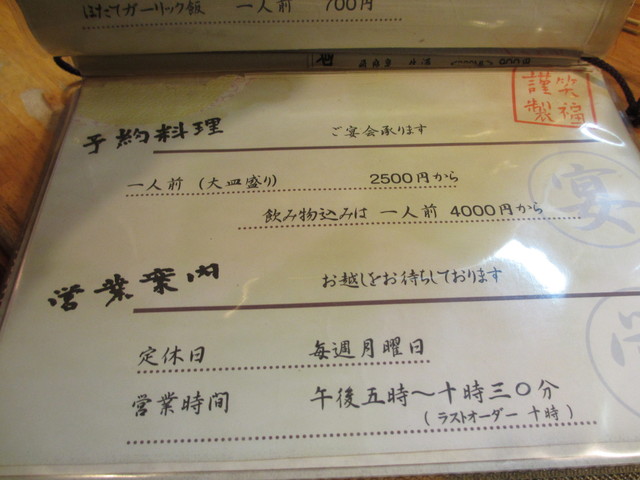 ほたてガーリック飯 一人前 700円
笑福
謹製
予約料理 ご宴会承ります
一人前 (大皿盛り) 2500円から
飲み物込みは 一人前 4000円から
宴
営業案内 お越しをお待ちしております
定休日 毎週月曜日
営業時間 午後五時～十時三〇分
(ラストオーダー 十時)